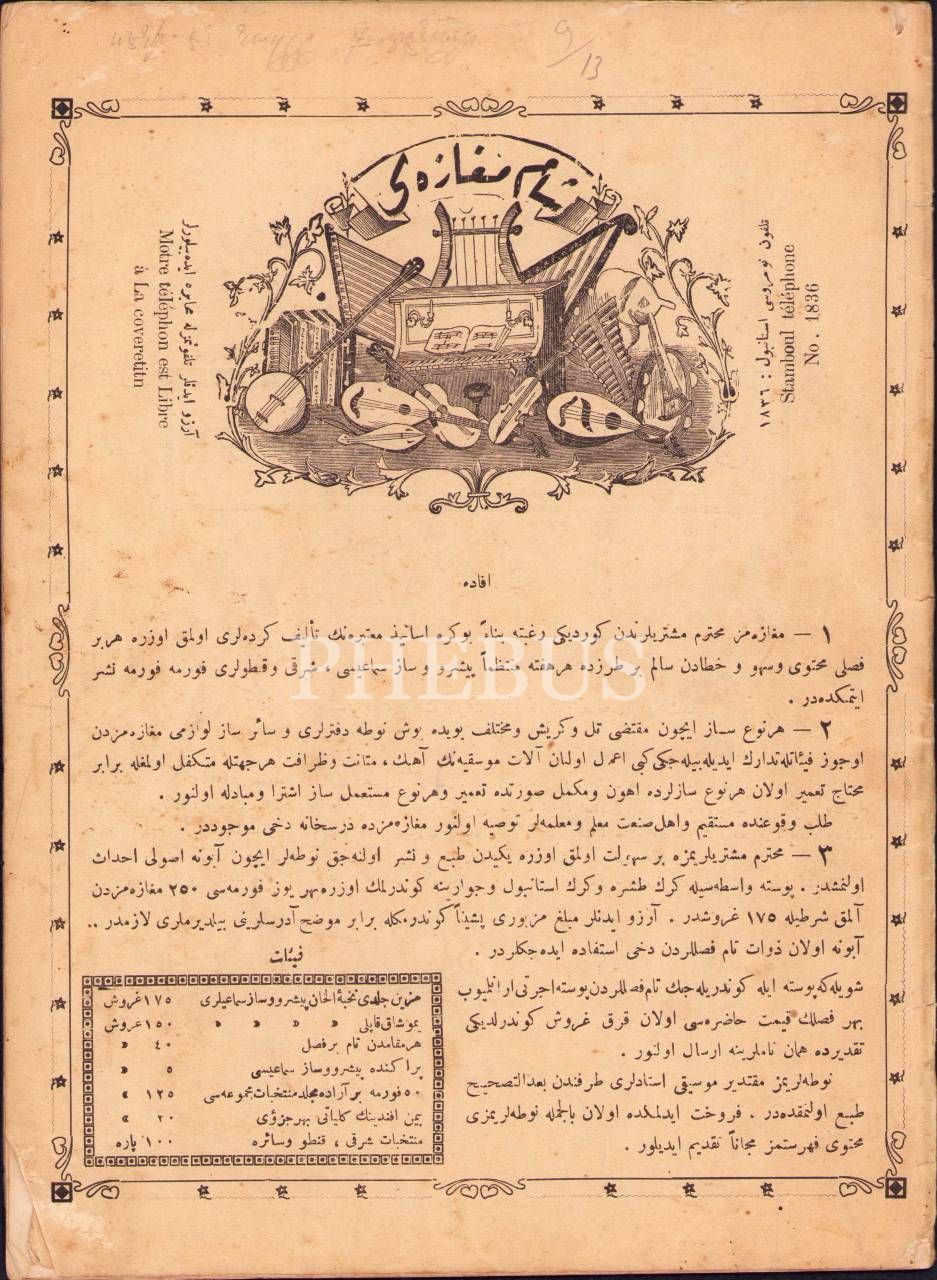 9/13
شام مغازه‌سی
تلفون نومروسی استانبول : ١٨٣٦
Stamboul téléphone
No. 1836
آرزو ایدنلر تلفونمزله مخابره ایده‌بیلورلر
Motre téléphon est Libre
à La coveretitn
افاده
١ — مغازه‌مز محترم مشتریلرندن كوردیكی رغبته بناءً بوكره اساتیذ معتبره‌نك تألیف كرده‌لری اولمق اوزره هربر
فصلی محتوی وسهو و خطادن سالم بر طرزده هر هفته منتظماً پیشرو و ساز سماعیسی ، شرقی وقطولری فورمه فورمه نشر
ایتمكده‌در .
٢ — هرنوع ساز ایچون مقتضی تل وكریش ومختلف بویده بوش نوطه دفترلری و سائر ساز لوازمی مغازه‌مزدن
اوجوز فیئاتله تدارك ایدیله‌بیله‌جكی كبی اعمال اولنان آلات موسقیه‌نك آهنك ، متانت وظرافت هرجهتله متكفل اولمغله برابر
محتاج تعمیر اولان هرنوع سازلرده اهون ومكمل صورتده تعمیر وهرنوع مستعمل ساز اشترا ومبادله اولنور .
طلب وقوعنده مستقیم واهل صنعت معلم ومعلمه‌لر توصیه اولنور مغازه‌مزده درسخانه دخی موجوددر .
٣ — محترم مشتریلریمزه بر سهولت اولمق اوزره یكیدن طبع و نشر اولنه‌جق نوطه‌لر ایچون آبونه اصولی احداث
اولنمشدر . پوسته واسطه‌سیله كرك طشره وكرك استانبول وجوارینه كوندرلمك اوزره بهر یوز فورمه‌سی ٢٥٠ مغازه‌مزدن
آلمق شرطیله ١٧٥ غروشدر . آرزو ایدنلر مبلغ مزبوری پشیناً كوندرمكله برابر موضح آدرسلرینی بیلدیرملری لازمدر ..
آبونه اولان ذوات تام فصللردن دخی استفاده ایده‌جكلردر .
شویله‌كه پوسته ایله كوندریله‌جك تام فصللردن پوسته اجرتی آرانلیوب
بهر فصلك قیمت حاضره‌سی اولان قرق غروش كوندرلدیكی
تقدیرده همان ناملرینه ارسال اولنور .
نوطه‌لریمز مقتدیر موسیقی استادلری طرفندن بعدالتصحیح
طبع اولنمقده‌در . فروخت ایدلمكده اولان بالجمله نوطه‌لریمزی
محتوی فهرستمز مجاناً تقدیم ایدیلور .
فیئات
مزین جلدی نخبة الحان پیشرو وساز سماعیلری ١٧٥ غروش
یموشاق قاپلی » » » » ١٥٠ غروش
هر مقامدن تام بر فصل ٤٠ »
پراكنده پیشرو وساز سماعیسی ٥ »
٥٠ فورمه بر آراده مجلد منتخبات مجموعه‌سی ١٢٥ »
یمن افندینك كلیاتی بهر جزؤی ٢٠ »
منتخبات شرقی ، قنطو وسائره ١٠٠ پاره
PHEBUS